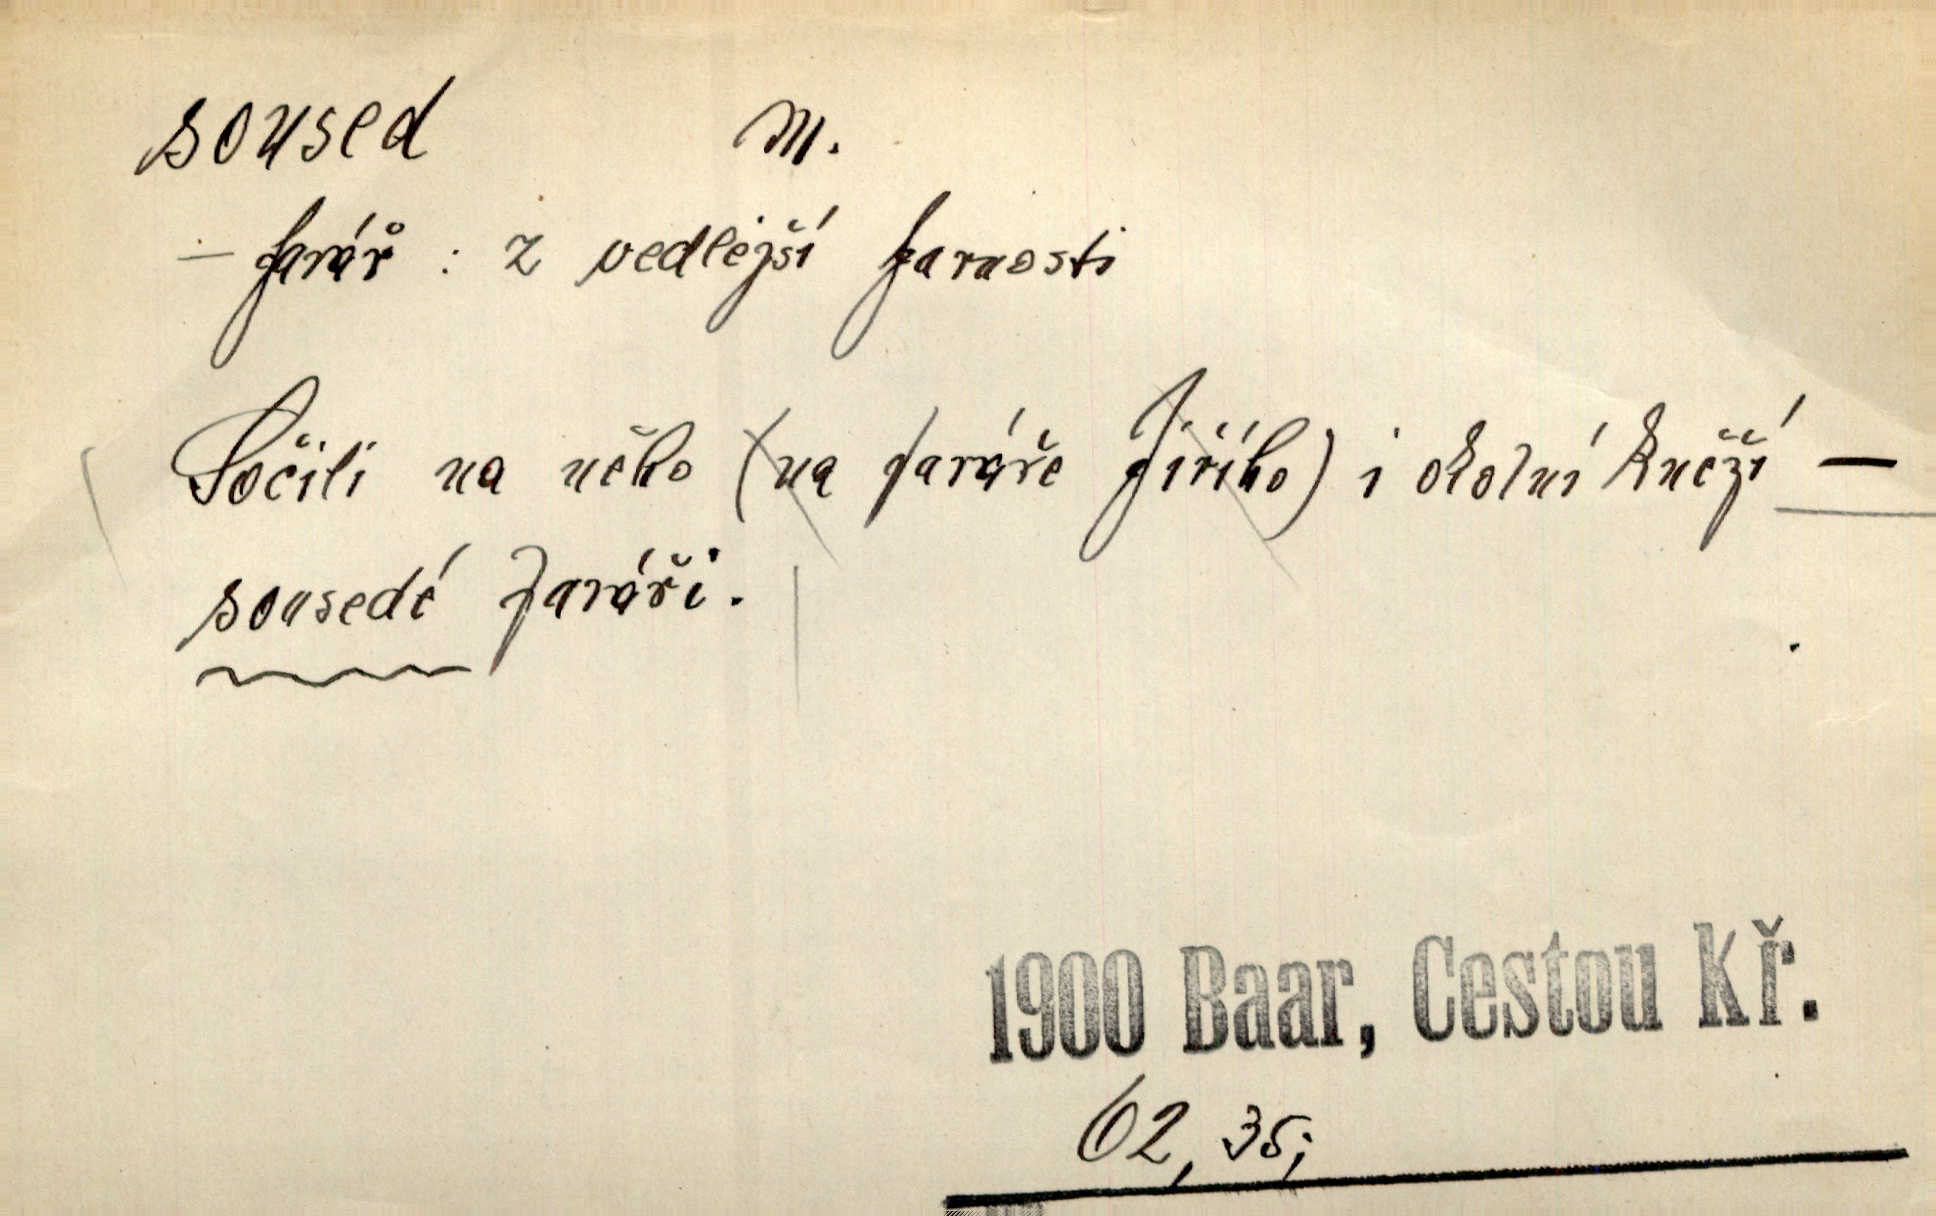 soused m.
– farář : z vedlejší farnosti
Sočili na něho (na faráře Jiřího) i okolní kněží –
sousedé faráři.
1900 Baar, Cestou Kř.
62, 35;